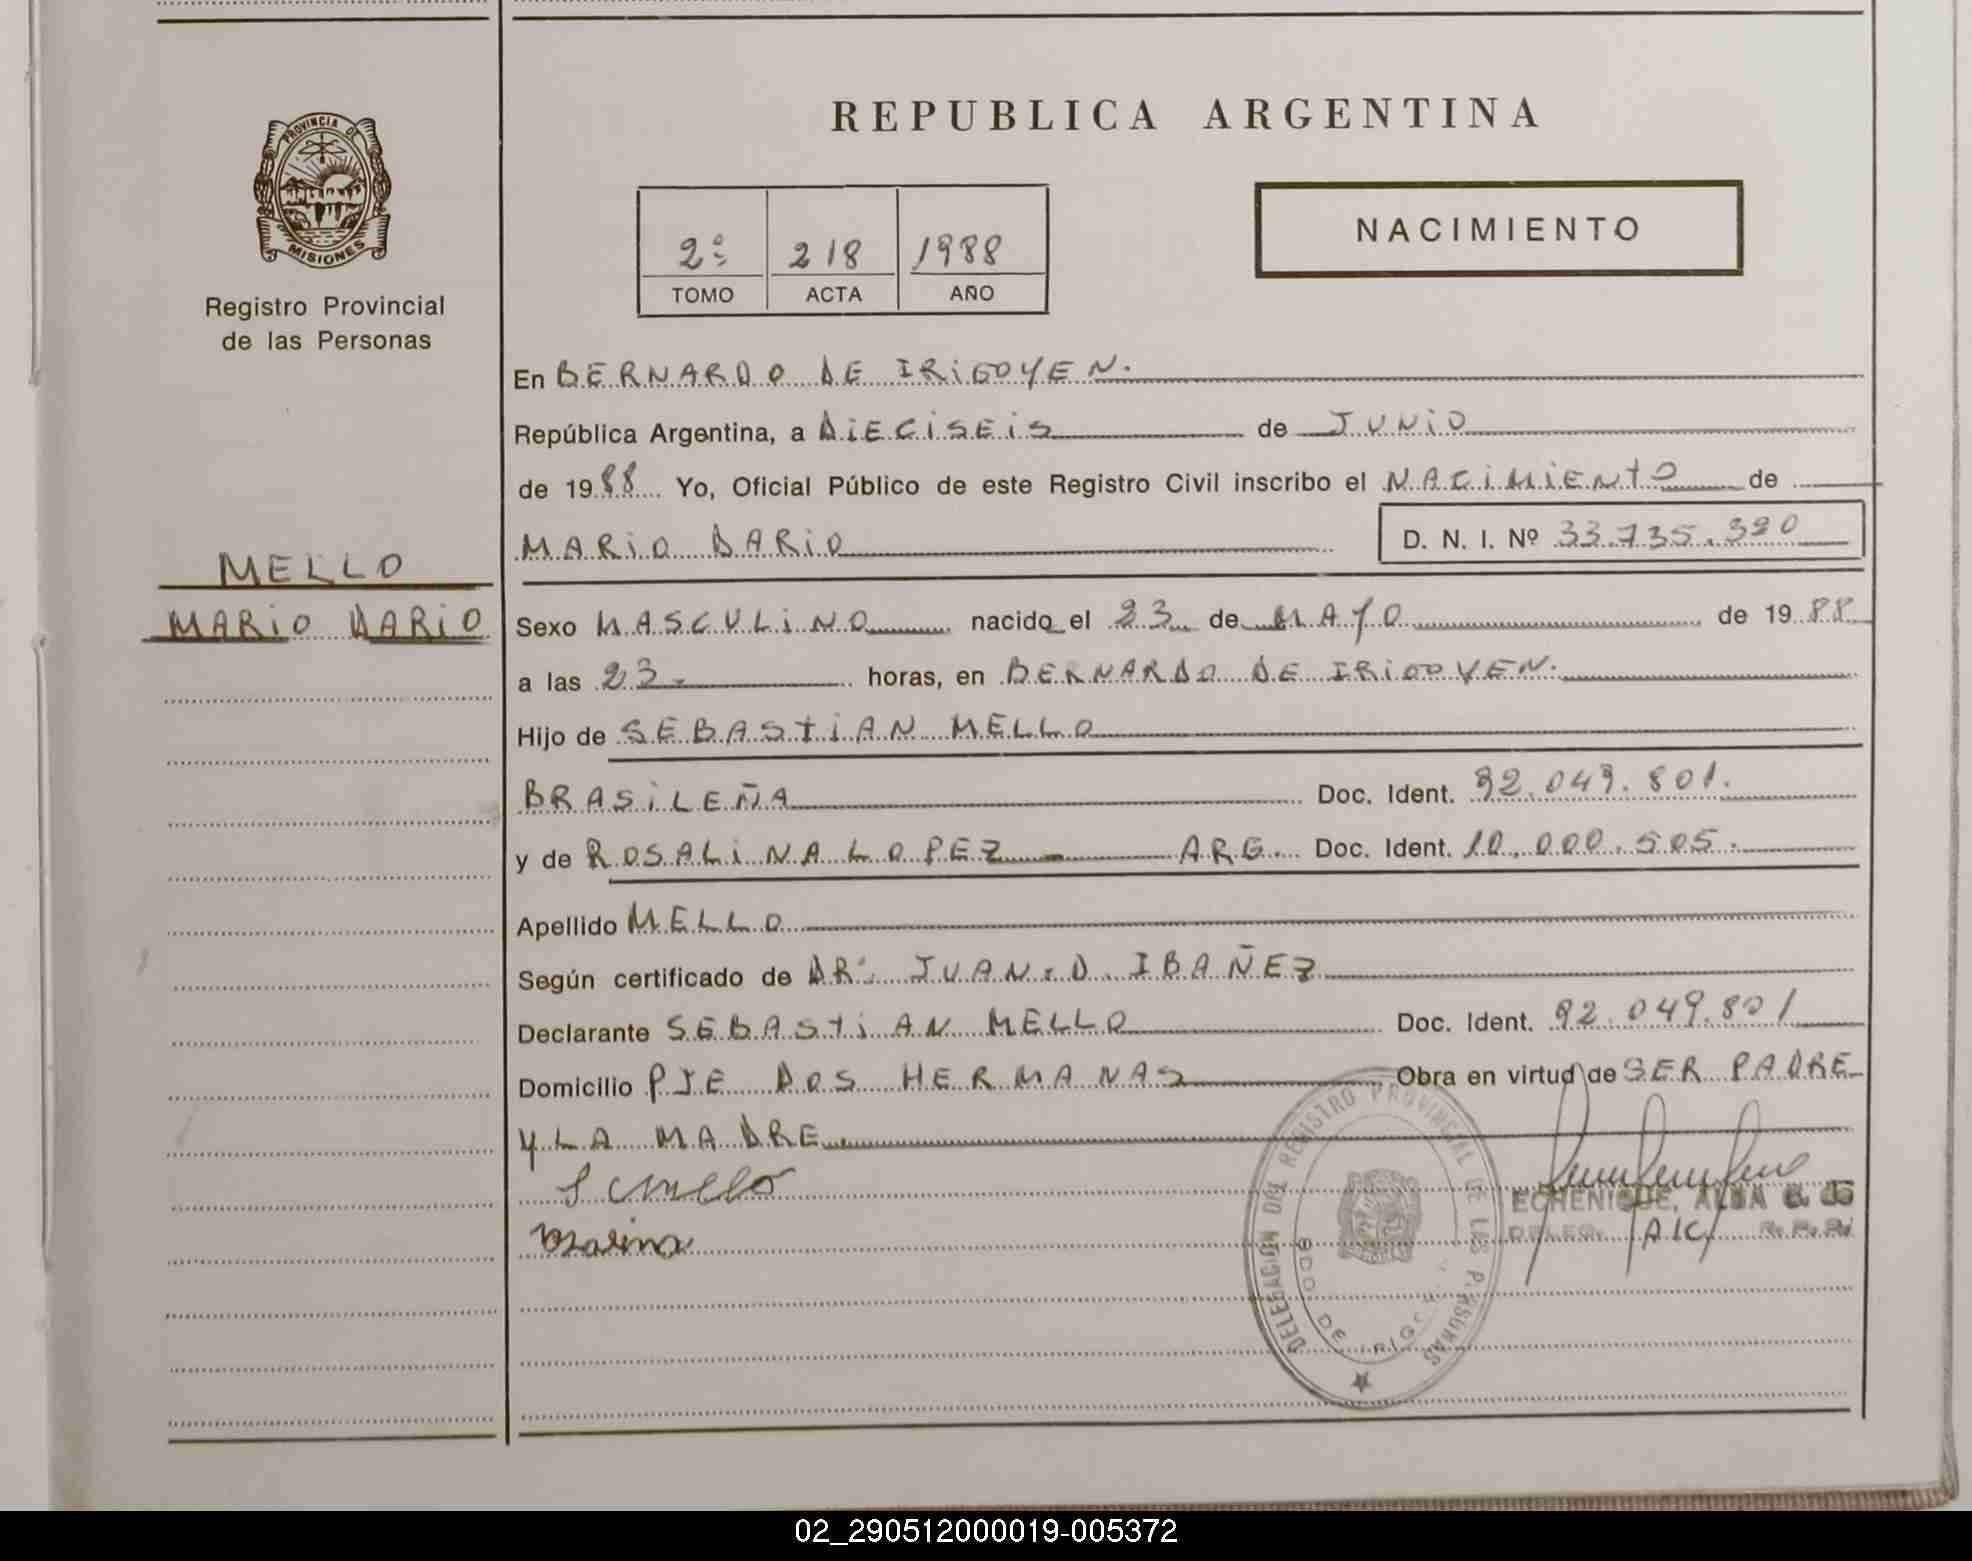 REPUBLICA ARGENTINA
PROVINCIA DE
MISIONES
Registro Provincial
de las Personas
2º 218 1988
TOMO ACTA AÑO
NACIMIENTO
En BERNARDO DE IRIGOYEN.
República Argentina, a DIECISEIS de JUNIO
de 1988 Yo, Oficial Público de este Registro Civil inscribo el NACIMIENTO de
MARIO DARIO D. N. I. Nº 33.735.390
MELLO
MARIO DARIO
Sexo MASCULINO nacido el 23 de MAYO de 1988
a las 23. horas, en BERNARDO DE IRIGOYEN.
Hijo de SEBASTIAN MELLO
BRASILEÑA Doc. Ident. 92.049.801.
y de ROSALINA LOPEZ ARG. Doc. Ident. 10.000.505.
Apellido MELLO
Según certificado de DR. JUAN.D. IBAÑEZ
Declarante SEBASTIAN MELLO Doc. Ident. 92.049.801
Domicilio PJE DOS HERMANAS Obra en virtud de SER PADRE
Y LA MADRE
S Mello
ECHENIQUE, ALBA
DELEG. R.P.P.
DELEGACION DEL REGISTRO PROVINCIAL DE LAS PERSONAS
BDO DE IRIGOYEN
02_290512000019-005372